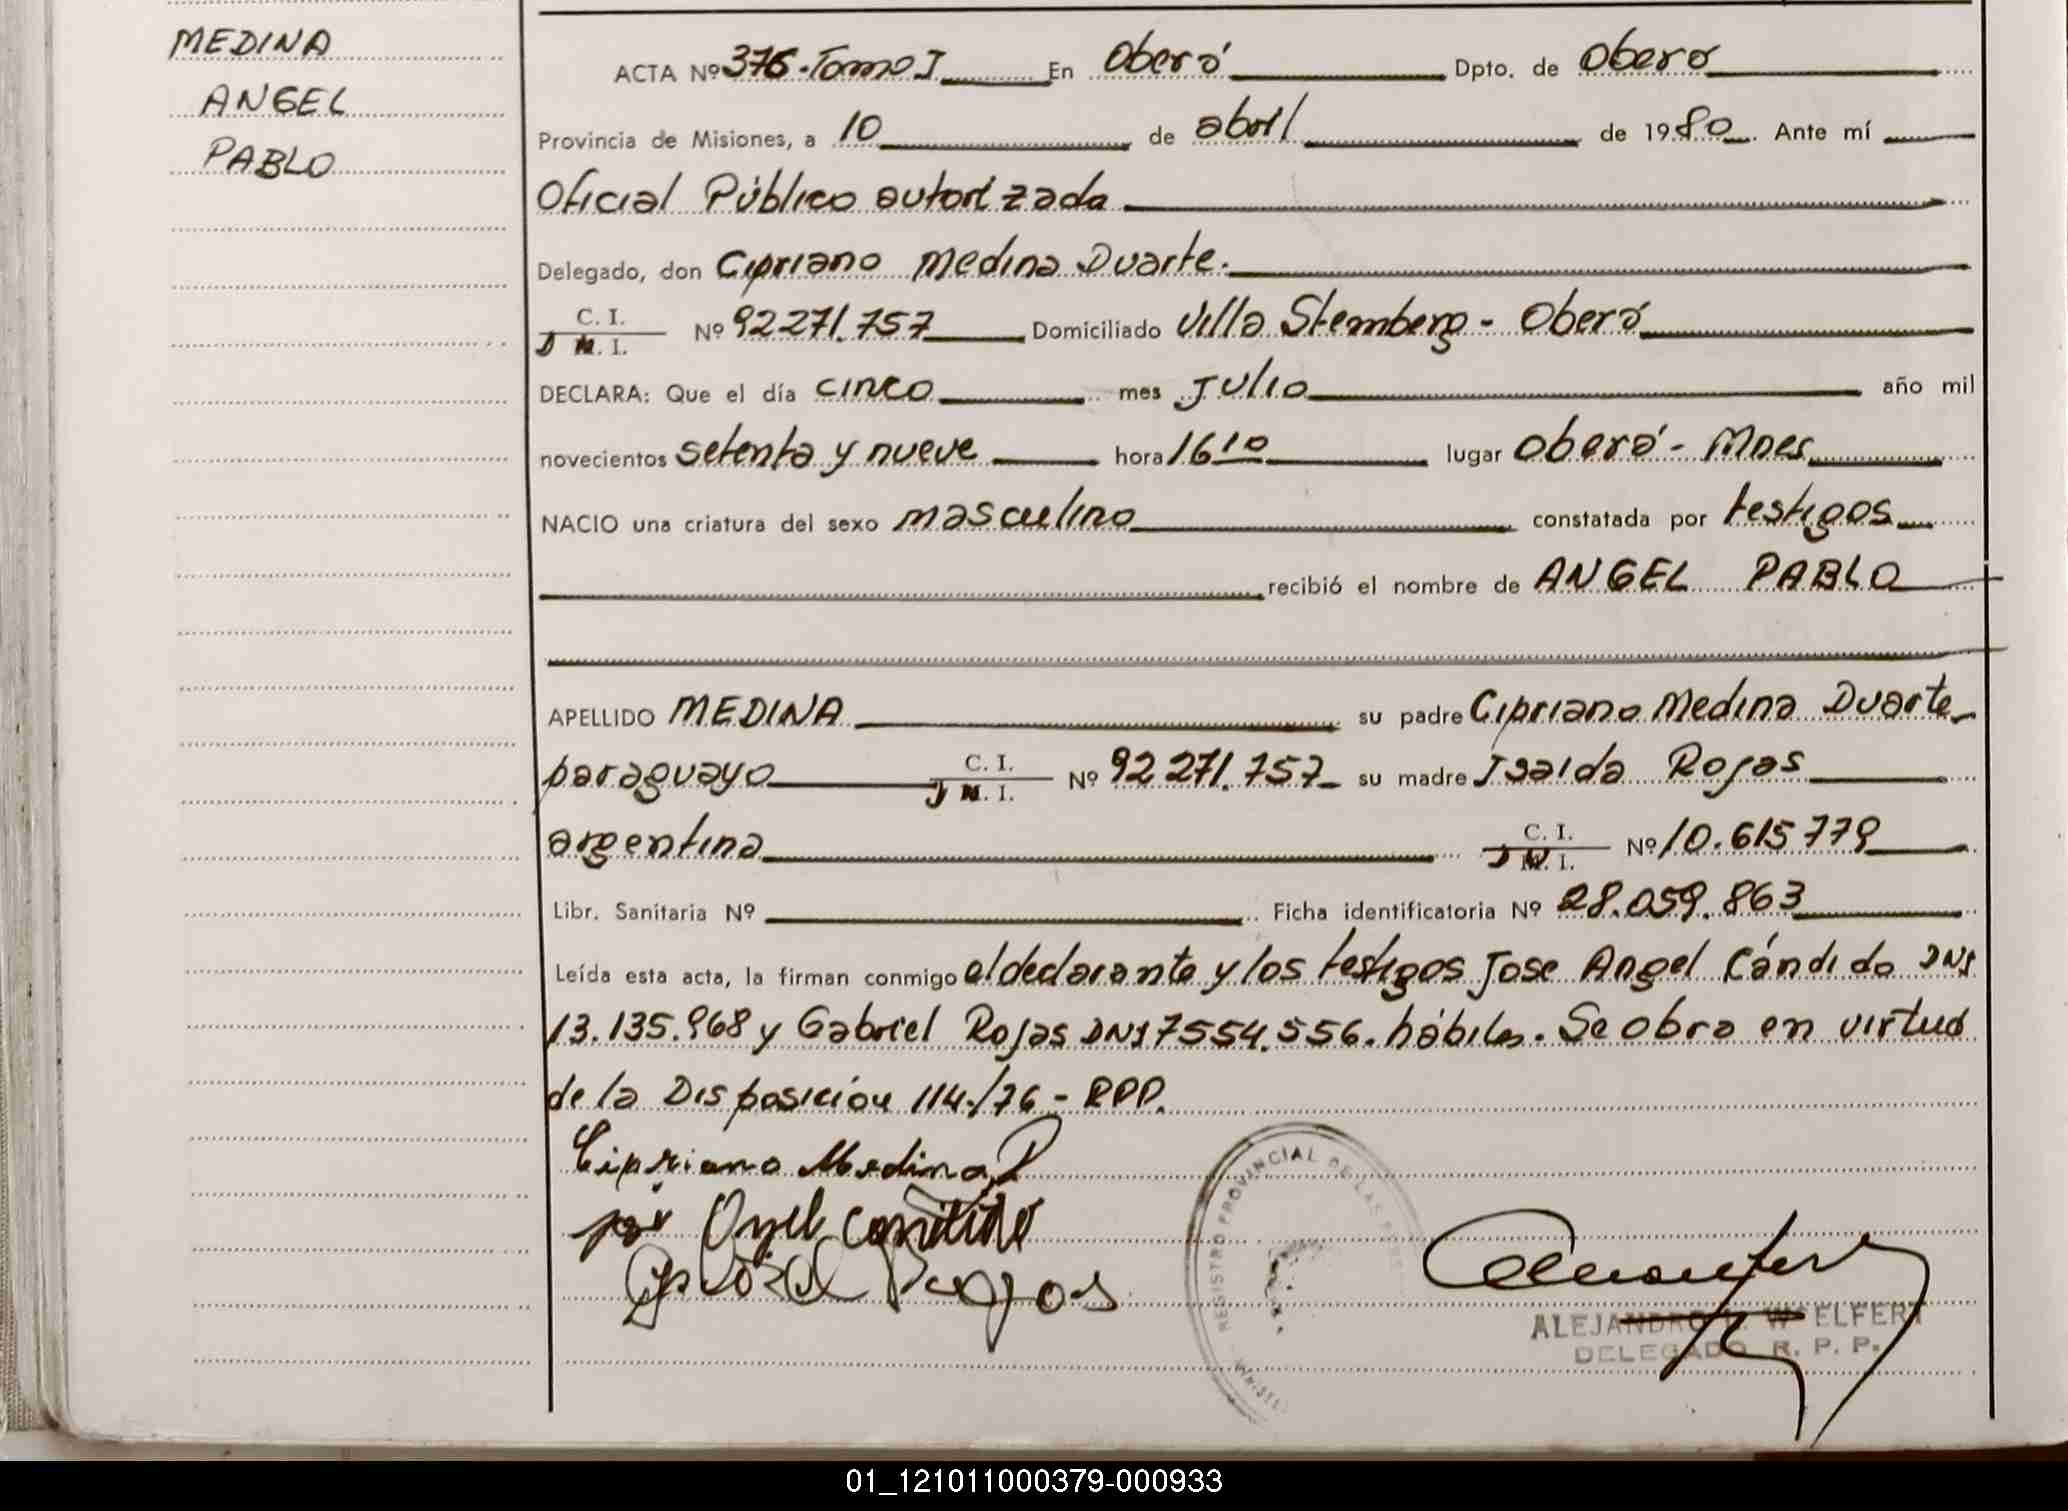 MEDINA
ANGEL
PABLO
ACTA Nº 376-Tomo I En Oberá Dpto. de Oberá
Provincia de Misiones, a 10 de abril de 1980. Ante mí
Oficial Público autorizada
Delegado, don Cipriano Medina Duarte.
C. I.
D M. I. Nº 92 271.757 Domiciliado Villa Stemberg - Oberá
DECLARA: Que el día cinco mes Julio año mil
novecientos setenta y nueve hora 16 10 lugar Oberá - Mnes
NACIO una criatura del sexo masculino constatada por testigos
recibió el nombre de ANGEL PABLO
APELLIDO MEDINA su padre Cipriano Medina Duarte
paraguayo C. I. Nº 92 271.757 su madre Isalda Rojas
M. I.
argentina C. I. Nº 10.615779
M. I.
Libr. Sanitaria Nº Ficha identificatoria Nº 28.059.863
Leída esta acta, la firman conmigo el declarante y los testigos Jose Angel Cándido DNI
13.135.968 y Gabriel Rojas DNI 7554.556. hábiles. Se obra en virtud
de la Disposición 114/76 - RPP.
Cipriano Medina D
Angel
Rojas
REGISTRO PROVINCIAL DE LAS PERS
ALEJANDRO ELFERT
DELEGADO R. P. P.
01_121011000379-000933